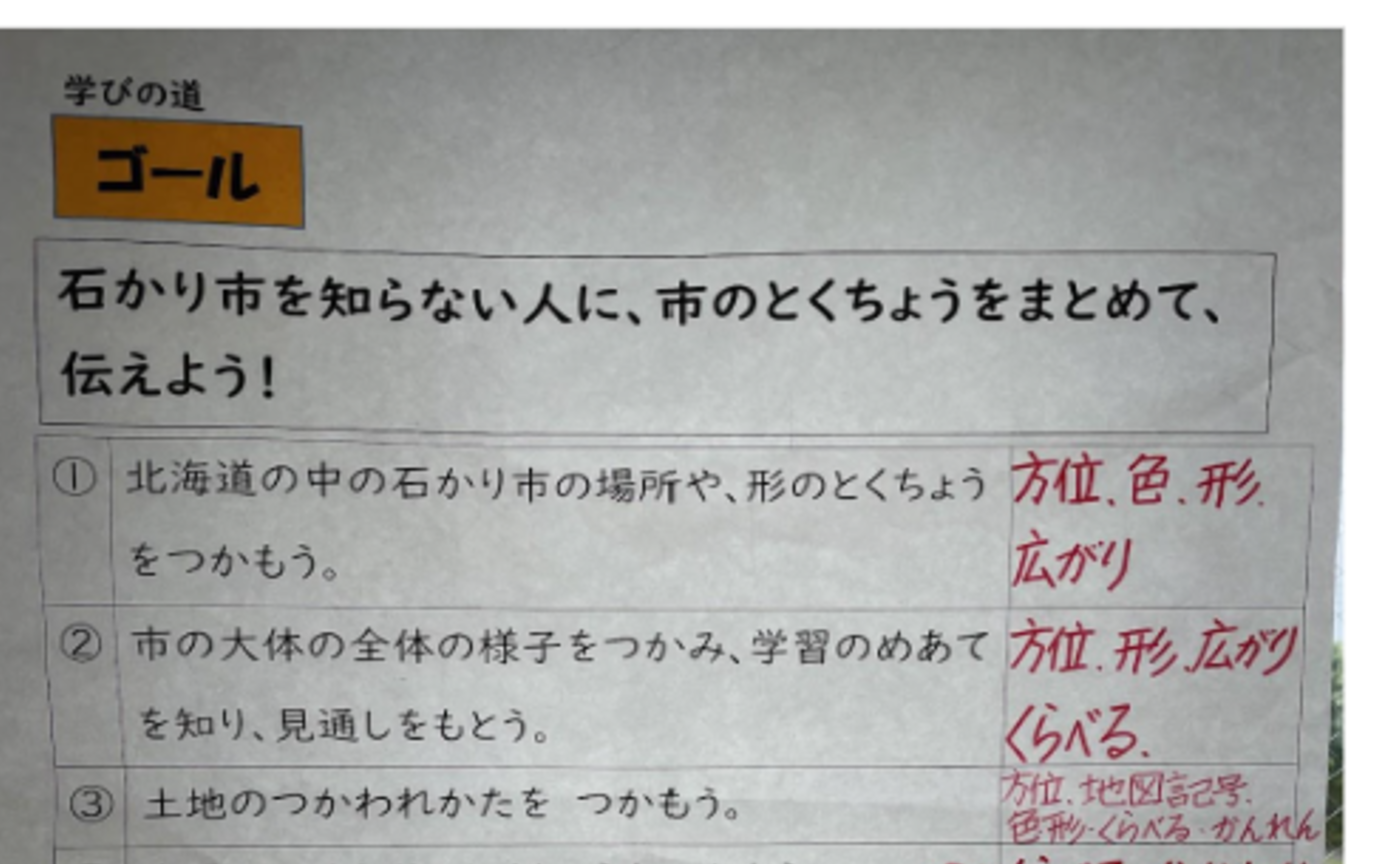 学びの道
ゴール
石かり市を知らない人に、市のとくちょうをまとめて、
伝えよう!
① 北海道の中の石かり市の場所や、形のとくちょう
をつかもう。
方位、色、形、
広がり
② 市の大体の全体の様子をつかみ、学習のめあて
を知り、見通しをもとう。
方位、形、広がり
くらべる、
③ 土地のつかわれかたを つかもう。
方位、地図記号、
色形・くらべる・かんれん